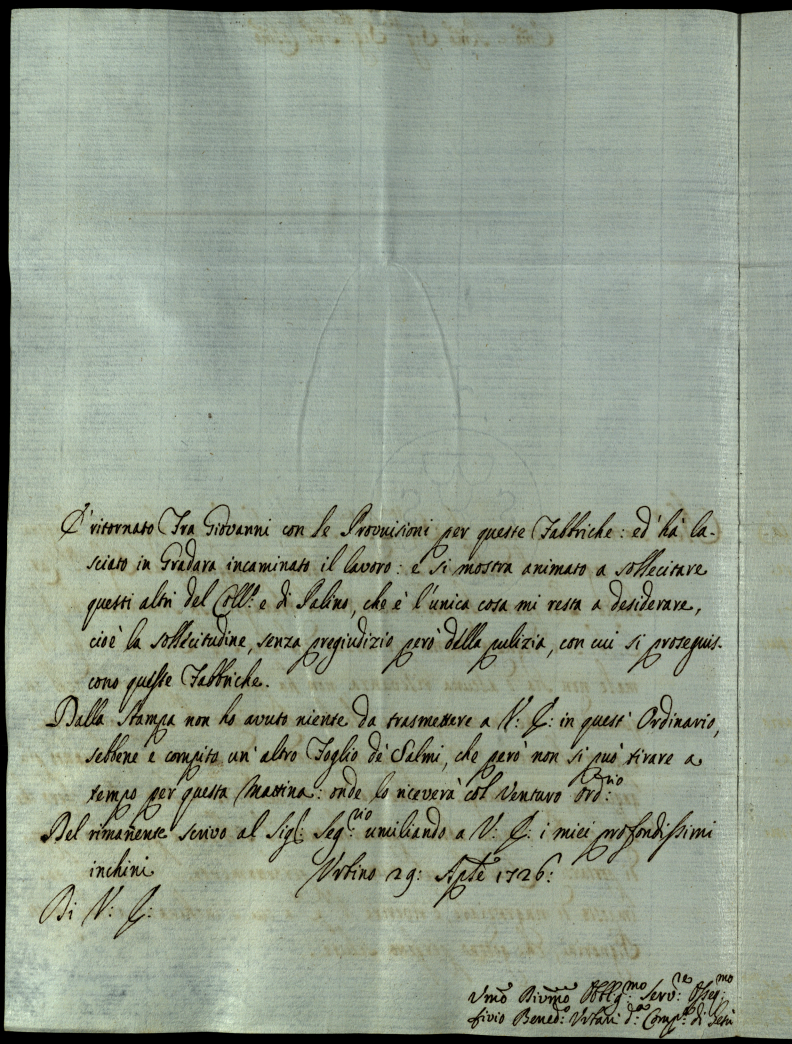 E' ritornato Fra Giovanni con le Provvisioni per queste Fabbriche: ed' hà la-
sciato in Gradara incaminato il lavoro: e si mostra animato a sollecitare
questi altri del Coll.º e di Palino, che è l'unica cosa mi resta a desiderare,
cioè la sollecitudine, senza pregiudizio però della pulizia, con cui si proseguis-
cono queste Fabbriche.
Dalla Stampa non ho avuto niente da trasmettere a V: E: in quest' Ordinario,
sebbene è compito un' altro Foglio de' Salmi, che però non si può tirare a
tempo per questa Mattina: onde lo riceverà col Venturo Ord:rio
Del rimanente scrivo al Sig.r Seg.rio umiliando a V: E: i miei profondissimi
inchini. Urbino 29: Aple 1726:
Di V: E:
Vmo Divmo Obblig:mo Serv:re Osseq:mo
Livio Bened:o Urbani d:a Comp:a di Gesù